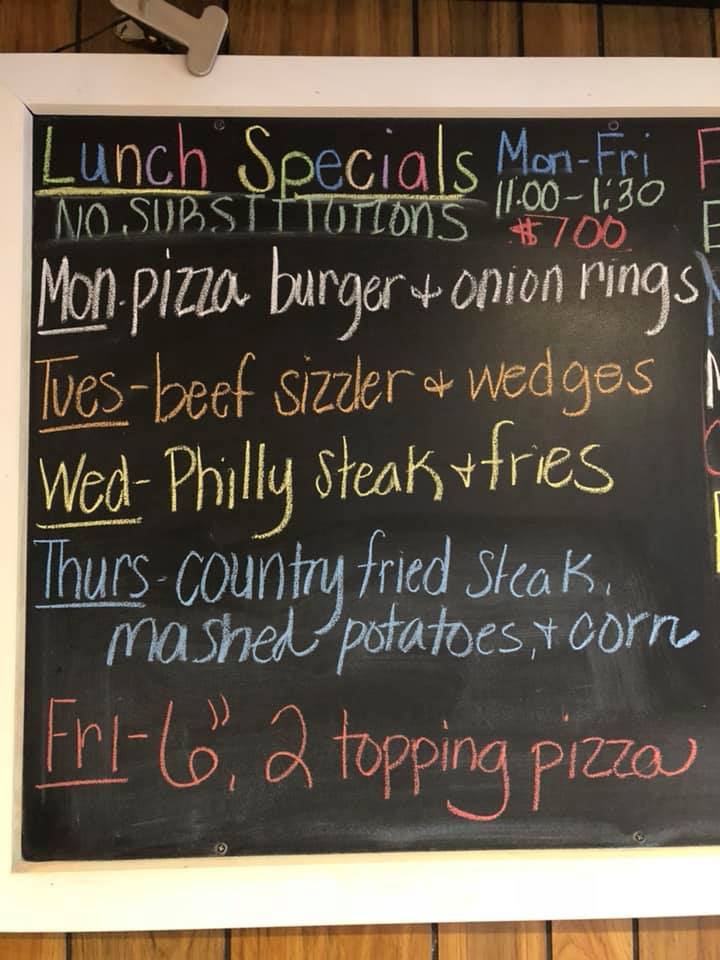 Lunch Specials Mon-Fri
NO SUBSTITUTIONS 11:00-1:30
$7.00
Mon-pizza burger + onion rings
Tues-beef sizzler & wedges
Wed-Philly steak + fries
Thurs-country fried steak,
mashed potatoes, + corn
Fri-6", 2 topping pizza